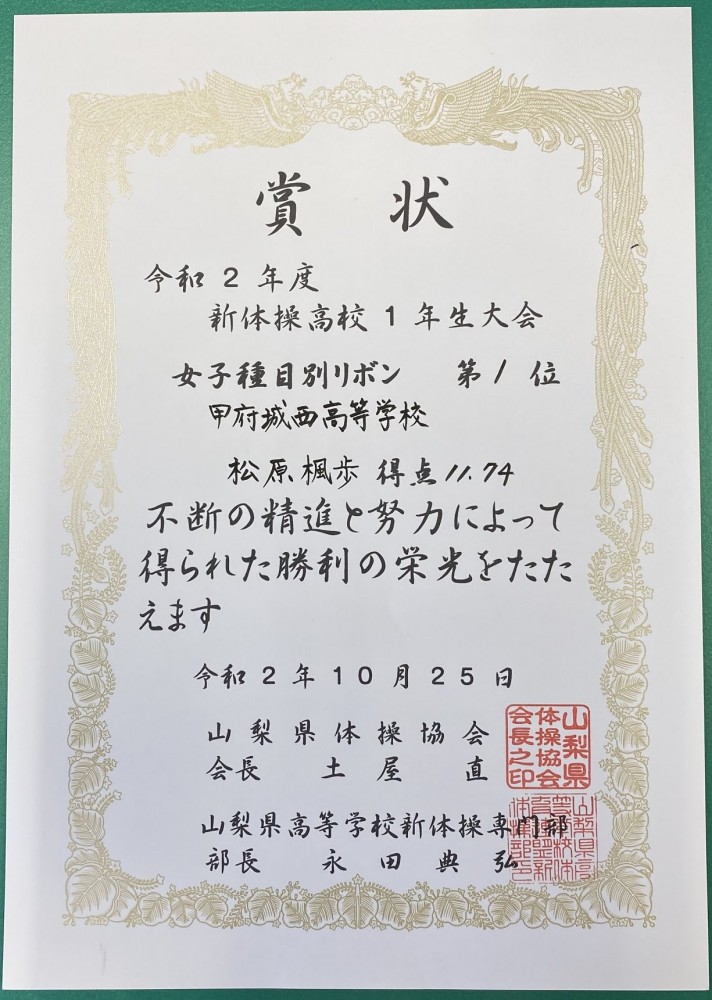 賞状
令和2年度
新体操高校1年生大会
女子種目別リボン 第1位
甲府城西高等学校
松原楓歩 得点11.74
不断の精進と努力によって
得られた勝利の栄光をたた
えます
令和2年10月25日
山梨県体操協会
会長 土屋直
山梨県体操協会会長之印
山梨県高等学校新体操専門部
部長 永田典弘